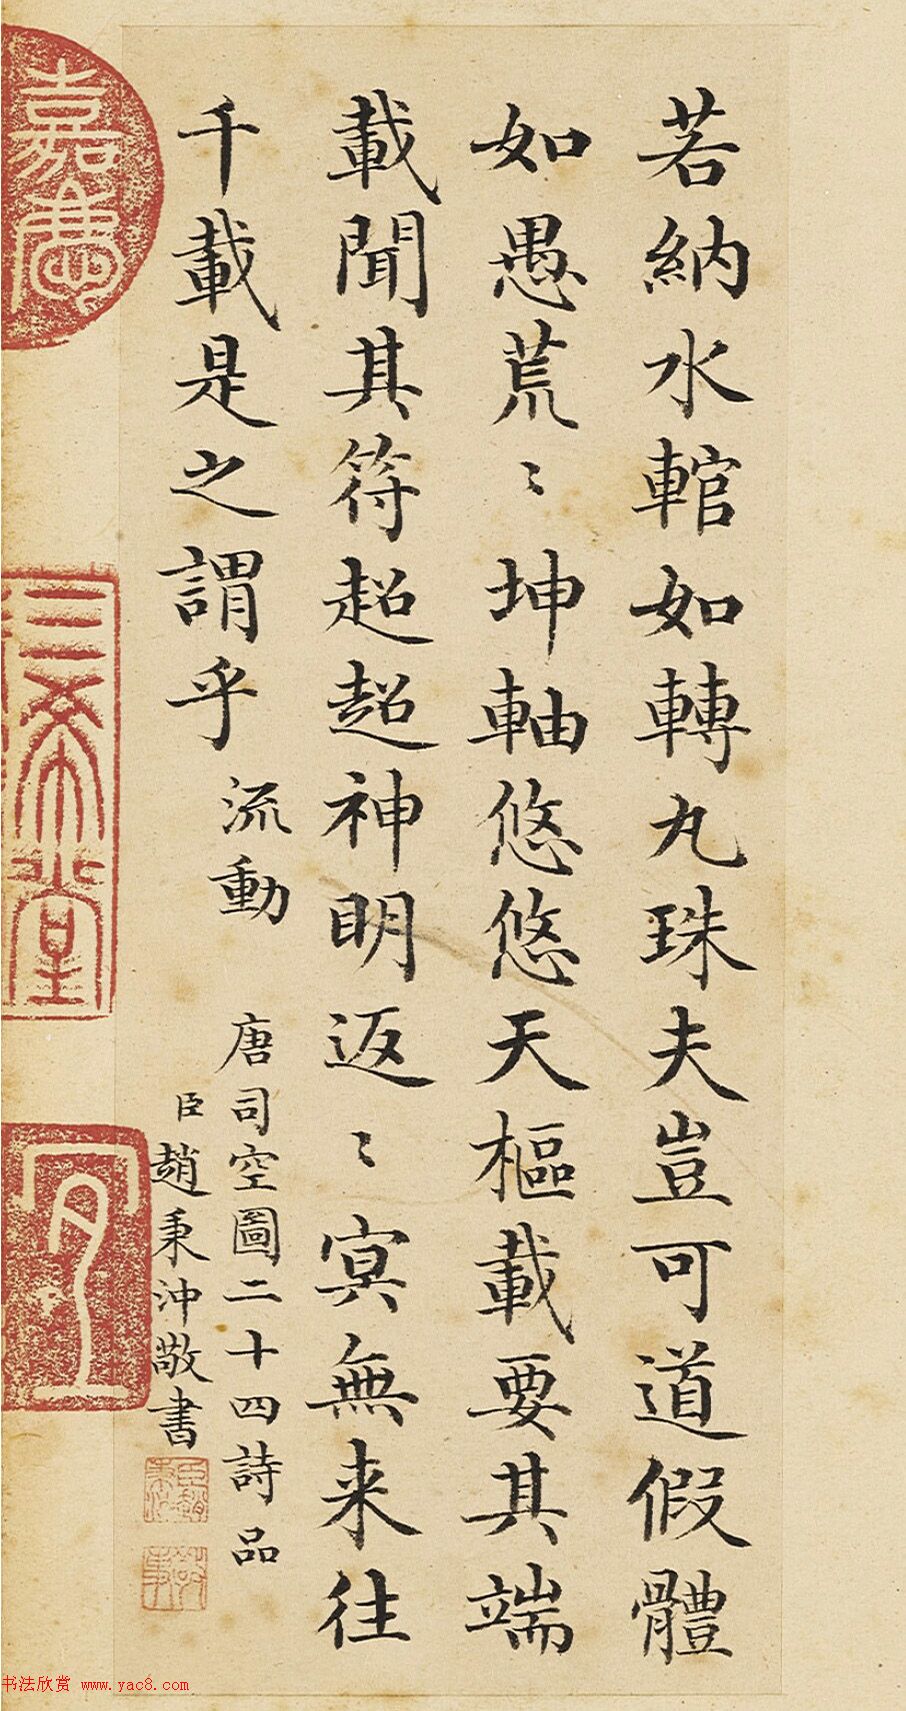 若納水輨如轉丸珠夫豈可道假體
如愚荒〻坤軸悠悠天樞載要其端
載聞其符超超神明返〻冥無来往
千載是之謂乎
流動
唐司空圖二十四詩品
臣趙秉沖敬書
嘉慶
三希堂
宜
书法欣赏 www.yac8.com